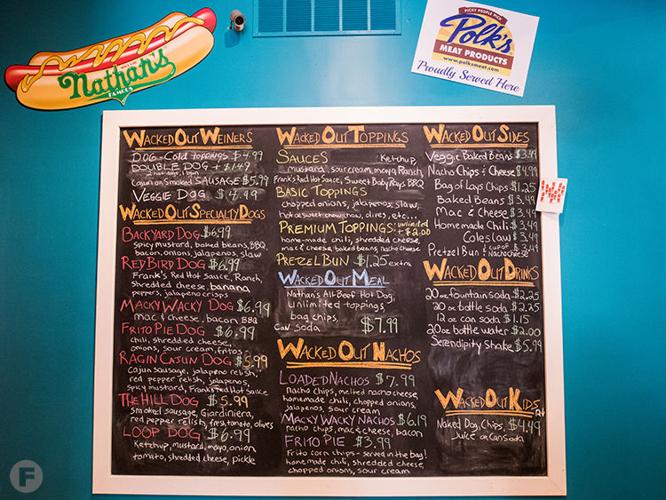 Nathan's
FAMOUS
PICKY PEOPLE PICK
Polk's
MEAT PRODUCTS
www.polksmeat.com
Proudly Served Here
WACKED OUT WEINERS
DOG - Cold toppings $4.99
DOUBLE DOG + $1.49
Cajun Smoked SAUSAGE $5.99
VEGGIE DOG $4.99
WACKED OUT SPECIALTY DOGS
BACKYARD DOG $6.99
spicy mustard, baked beans, BBQ,
bacon, onions, jalapenos, slaw
RED BIRD DOG $6.99
Frank's Red Hot sauce, Ranch,
shredded cheese, banana
peppers, jalapeno crisps
MACKY WACKY DOG $6.99
mac & cheese, bacon, BBQ
FRITO PIE DOG $6.99
chili, shredded cheese,
onions, sour cream, fritos
RAGIN CAJUN DOG $5.99
cajun sausage, jalapeno relish,
red pepper relish, jalapenos,
spicy mustard, Franks Red Hot sauce
THE HILL DOG $5.99
smoked sausage, Giardiniera,
red pepper relish, fresh tomato, olives
LOOP DOG $6.99
ketchup, mustard, mayo, onion
tomato, shredded cheese, pickle
WACKED OUT TOPPINGS
SAUCES Ketchup,
mustard, sour cream, mayo, Ranch,
Frank's Red Hot Sauce, Sweet Baby Rays BBQ
BASIC TOPPINGS
chopped onions, jalapenos, slaw,
hot or sweet chow chow, olives, etc...
PREMIUM TOPPINGS unlimited + $2.00
home-made chili, shredded cheese,
mac & cheese, baked beans, nacho cheese
PRETZEL BUN $1.25 extra
WACKED OUT MEAL
Nathan's All-Beef Hot Dog,
Unlimited toppings,
bag chips,
can soda $7.99
WACKED OUT NACHOS
LOADED NACHOS $7.99
nacho chips, melted nacho cheese,
homemade chili, chopped onions,
jalapenos, sour cream
MACKY WACKY NACHOS $6.19
nacho chips, mac & cheese, bacon
FRITO PIE $3.99
Frito corn chips - served in the bag!
homemade chili, shredded cheese,
chopped onions, sour cream
WACKED OUT SIDES
Veggie Baked Beans $3.49
Nacho Chips & Cheese $4.99
Bag of Lays Chips $1.25
Baked Beans $3.49
Mac & Cheese $3.49
Homemade Chili $3.49
Coleslaw $3.49
Pretzel Bun & Nacho cheese
WACKED OUT DRINKS
20oz fountain soda $2.25
20oz bottle soda $2.25
12 oz can soda $1.15
20oz bottle water $2.00
Serendipity Shake $5.99
WACKED OUT KIDS
Naked Dog, Chips, $4.49
Juice or Can soda
F